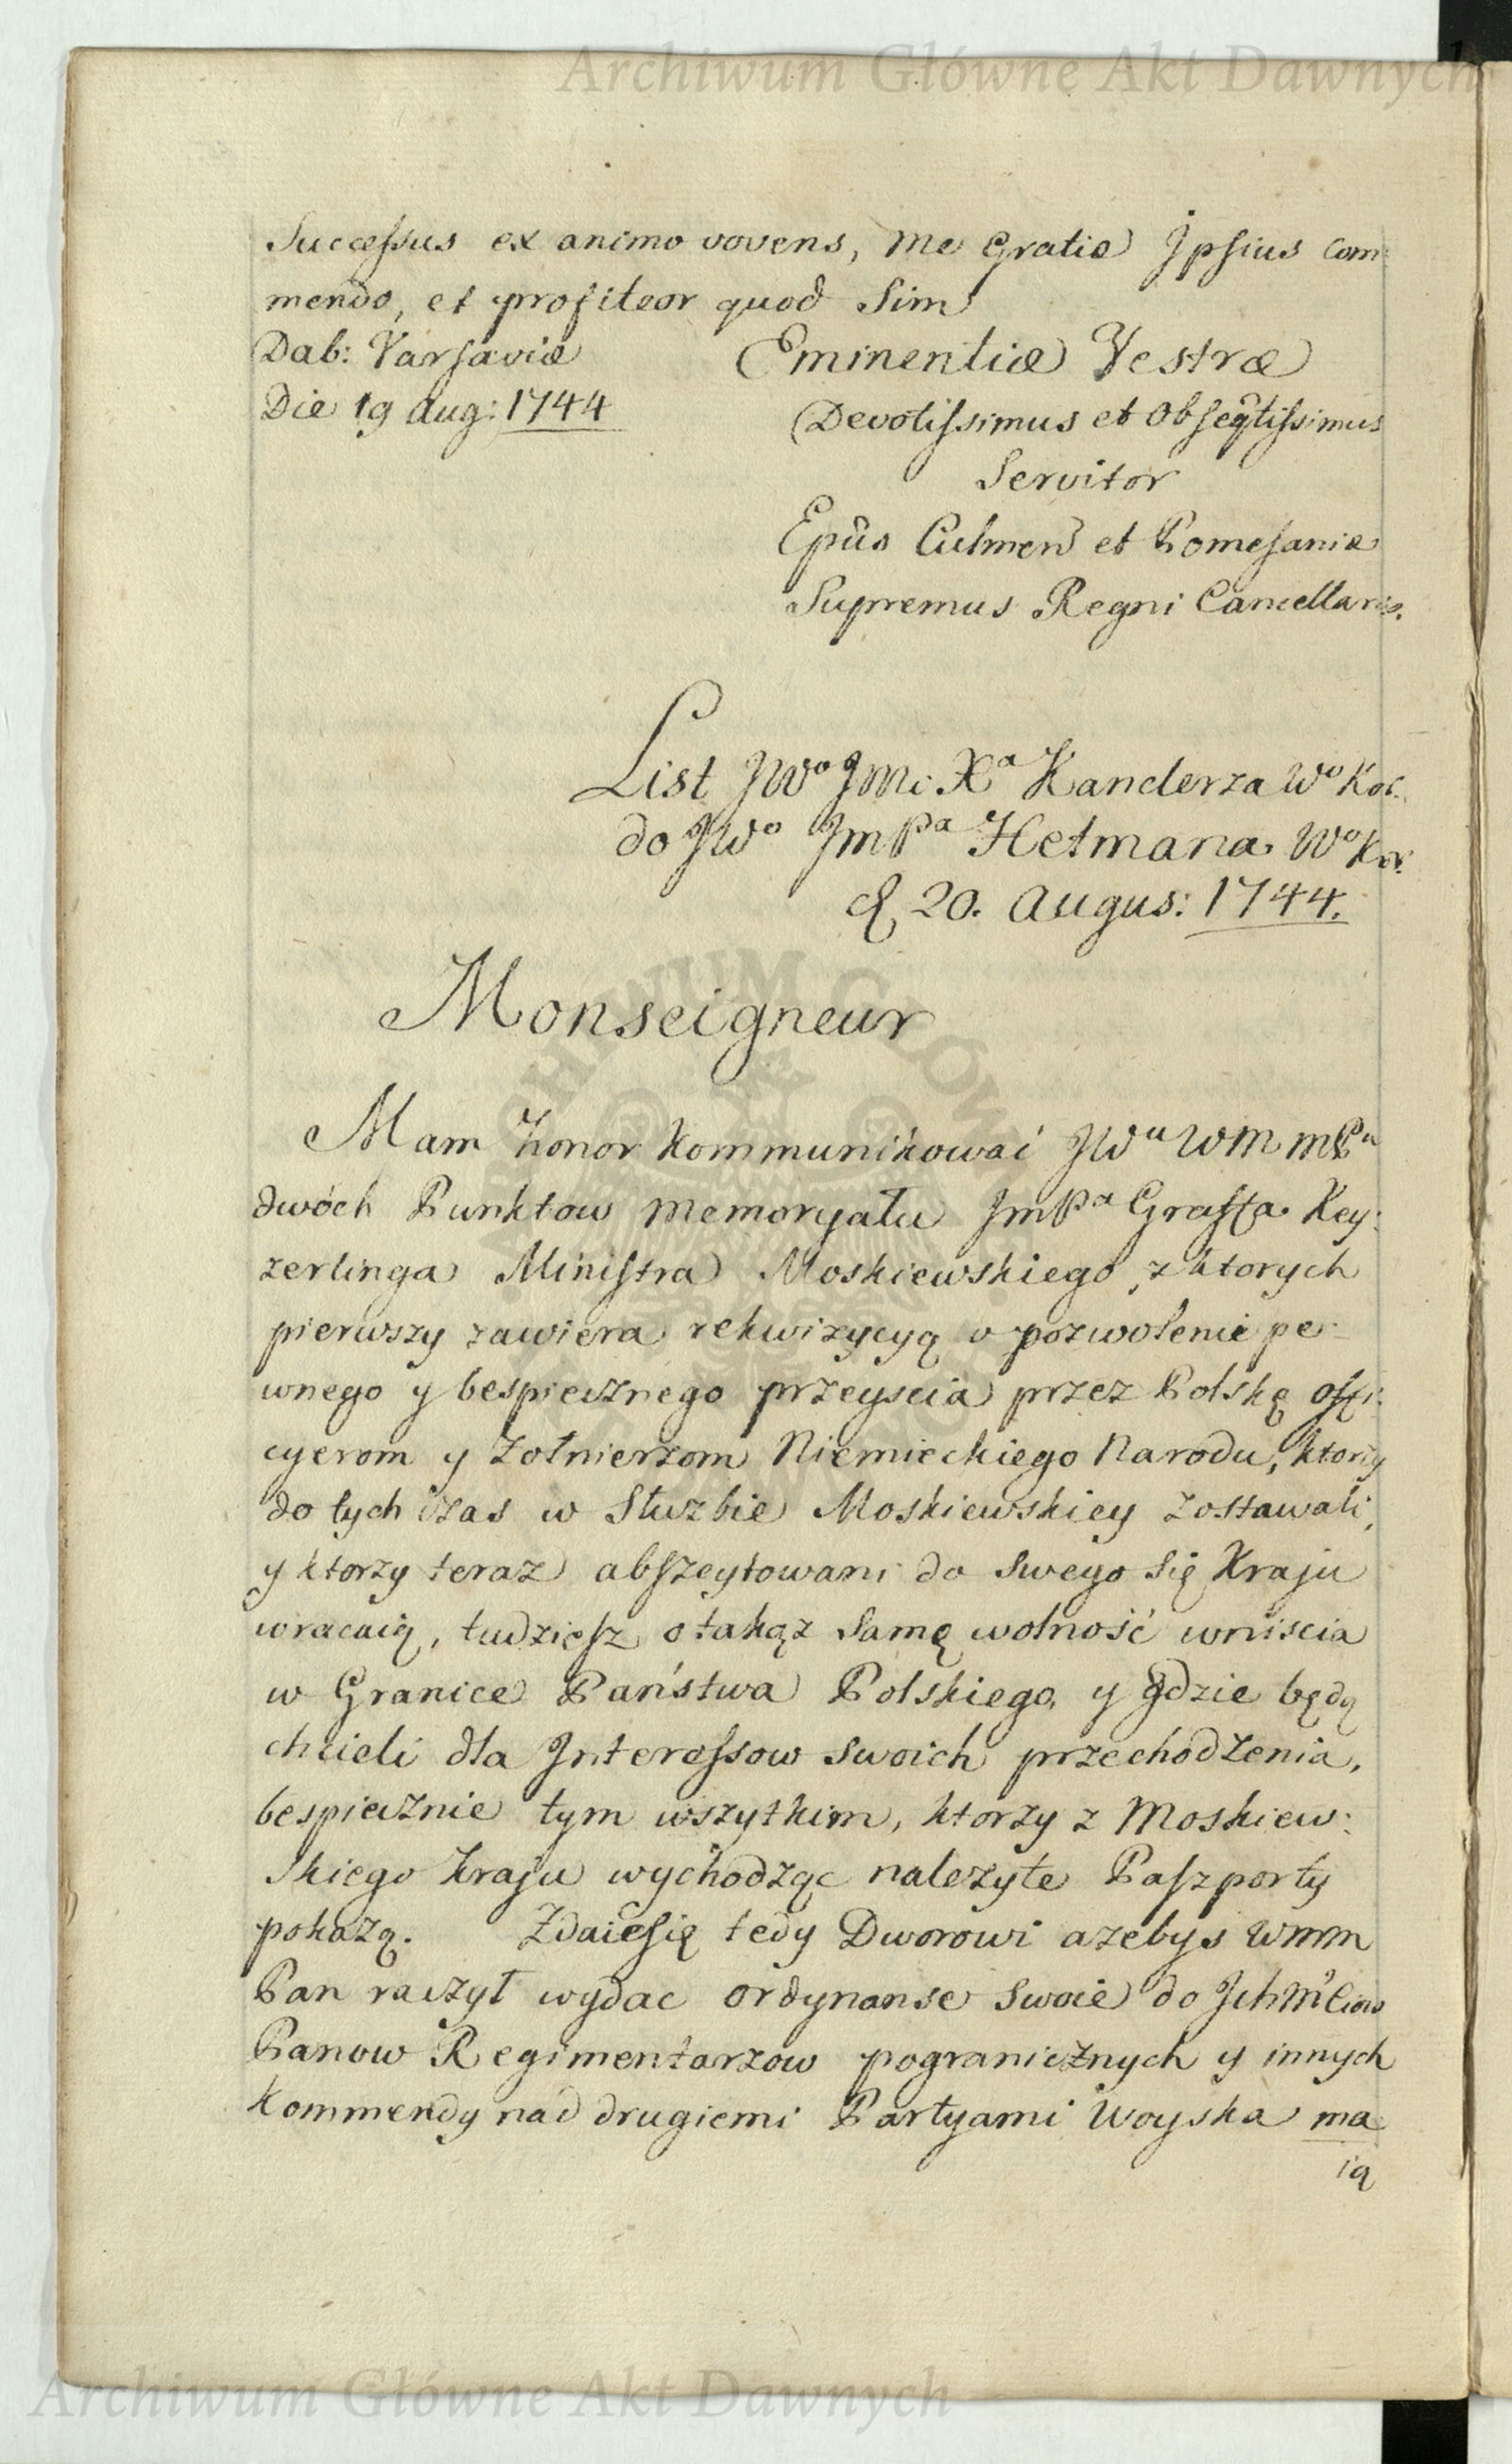 Archiwum Główne Akt Dawnych
Successus ex animo vovens, me Gratiæ Ipsius com:
mendo, et profiteor quod Sim
Dab: Varsaviæ
Die 19 Aug: 1744
Eminentiæ Vestræ
Devotissimus et Obseqtissimus
Servitor
Epûs Culmen et Pomesaniæ
Supremus Regni Cancellarius.
List JWo JMci Xa Kanclerza Wo Kor.
do JWo JmPa Hetmana Wo Kor:
d. 20. Augus: 1744.
Monseigneur
Mam honor kommunikowai JWu WM mPu
dwóch Punktow Memoryału JmPa Graffa Key:
zerlinga Ministra Moskiewskiego, z ktorych
pierwszy zawiera rekwizycyą o pozwolenie pe:
wnego y bespiecznego przeyscia przez Polskę offi:
cyerom y Zołnierzom Niemieckiego Narodu, ktorzy
do tych czas w Słuzbie Moskiewskiey zostawali,
y ktorzy teraz abszeytowani do swego się Kraju
wracaią, tudziesz o takąz samę wolność wniscia
w Granice Państwa Polskiego, y gdzie będą
chcieli dla Interessow swoich przechodzenia,
bespiecznie tym wszytkim, ktorzy z Moskiew:
skiego kraju wychodząc nalezyte Paszporty
pokazą. Zdaie się tedy Dworowi azebys WMM
Pan raczył wydac ordynanse swoie do Ichmciow
Panow Regimentarzow pogranicznych y innych
kommendy nad drugiemi Partyami Woyska ma
ią
Archiwum Główne Akt Dawnych